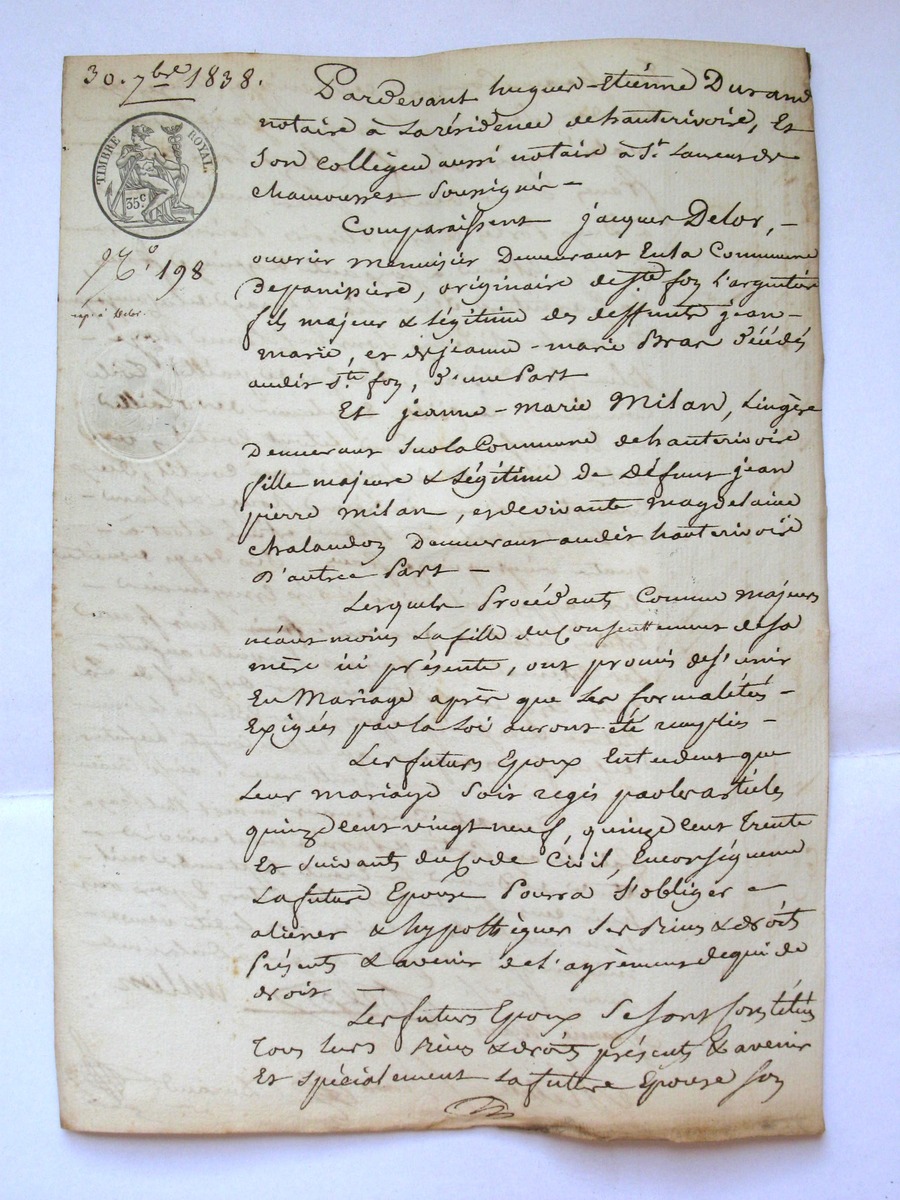 30. 7bre 1838.
TIMBRE ROYAL.
35c
No. 198
Pardevant hugues-Etiénne Durand
notaire à La résidence de hauterivoire, Et
Son collègue aussi notaire à St. Laurent de
chamousset Soussignés -
Comparaissent jacques Delor, -
ouvrier menuisier Demeurant En la Commune
De panissière, originaire de Ste foy l'argentière
fils majeur & Légitime des deffunts jean-
marie, et de jeanne-marie Bras Décédés
audit Ste foy, D'une Part
Et jeanne-marie Milan, Lingère
Demeurant Sur la Commune de hauterivoire
fille majeure & Légitime de Défunt jean
pierre milan, et de vivante magdelaine
chalandon Demeurant audit hauterivoire
D'autre Part -
Lesquels Procédants Comme majeurs
néant moins La fille du Consentement de Sa
mère ici présente, ont promis de S'unir
En Mariage après que Les formalités -
Exigées par la Loi auront été remplies -
Les futurs Epoux Entendent que
Leur mariage Soit régis par les articles
quinze cent vingt neuf, quinze cent Trente
Et Suivants du Code Civil, En conséquence
La future Epouse Pourra S'obliger -
aliéner & hypothéquer Ses Biens & droits
Présents & avenir de L'agrément de qui de
droit -
Les futurs Epoux Se Sont Constitués
Tous Leurs Biens & droits présents & avenir
Et spécialement La future Epouse Son